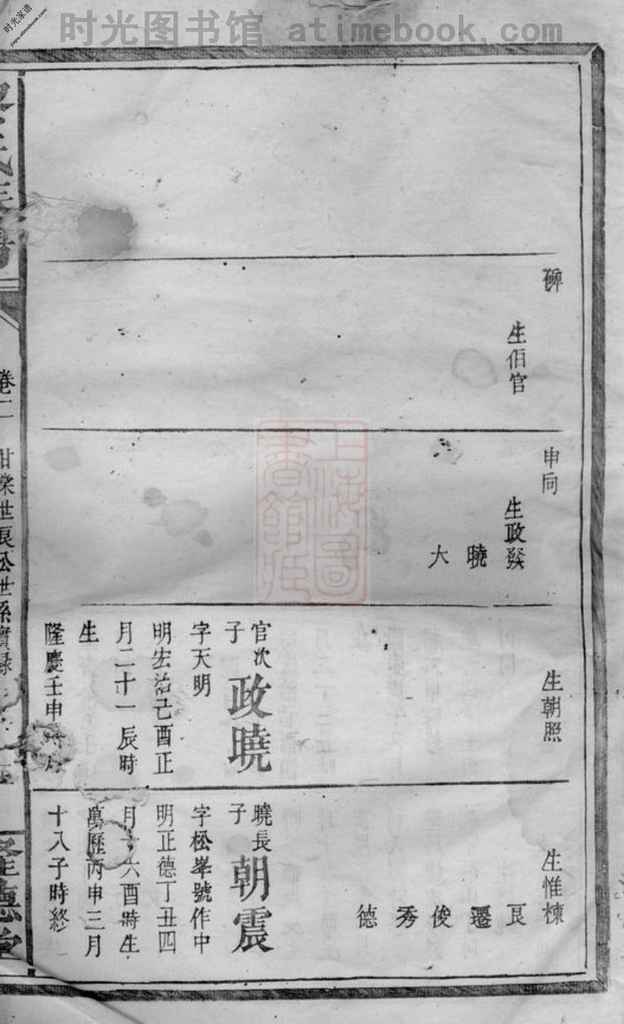 时光图书馆 atimebook.com
时光家谱
碑
生佰官
申同
生政發
曉
大
生朝照
官次
子
政曉
字天明
明宏治己酉正
月二十一辰時
生
隆慶壬申
生惟棟
良
遷
俊
秀
德
曉長
子
朝震
字松峯號作中
明正德丁丑四
月十六酉時生
萬歷丙申三月
十八子時終
卷二
世良公世系實錄
上海图書館藏